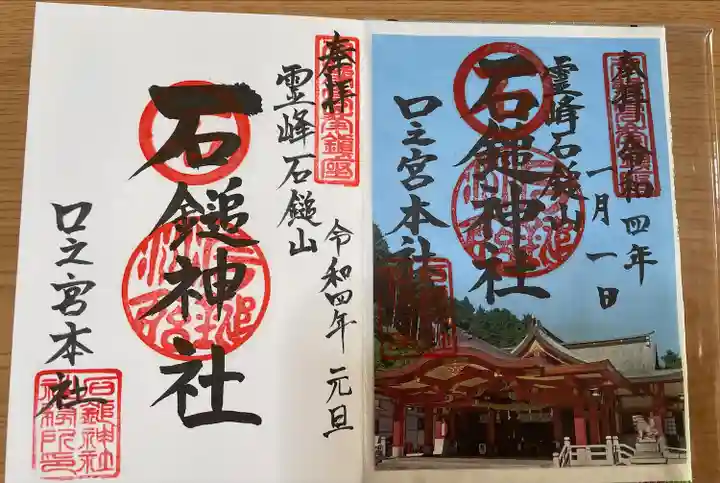 奉拝
霊峰石鎚山
石鎚神社
口之宮本社
令和四年 元旦
石鎚神社
社務所印
奉拝 令和四年
一月一日
霊峰石鎚山
石鎚神社
口之宮本社